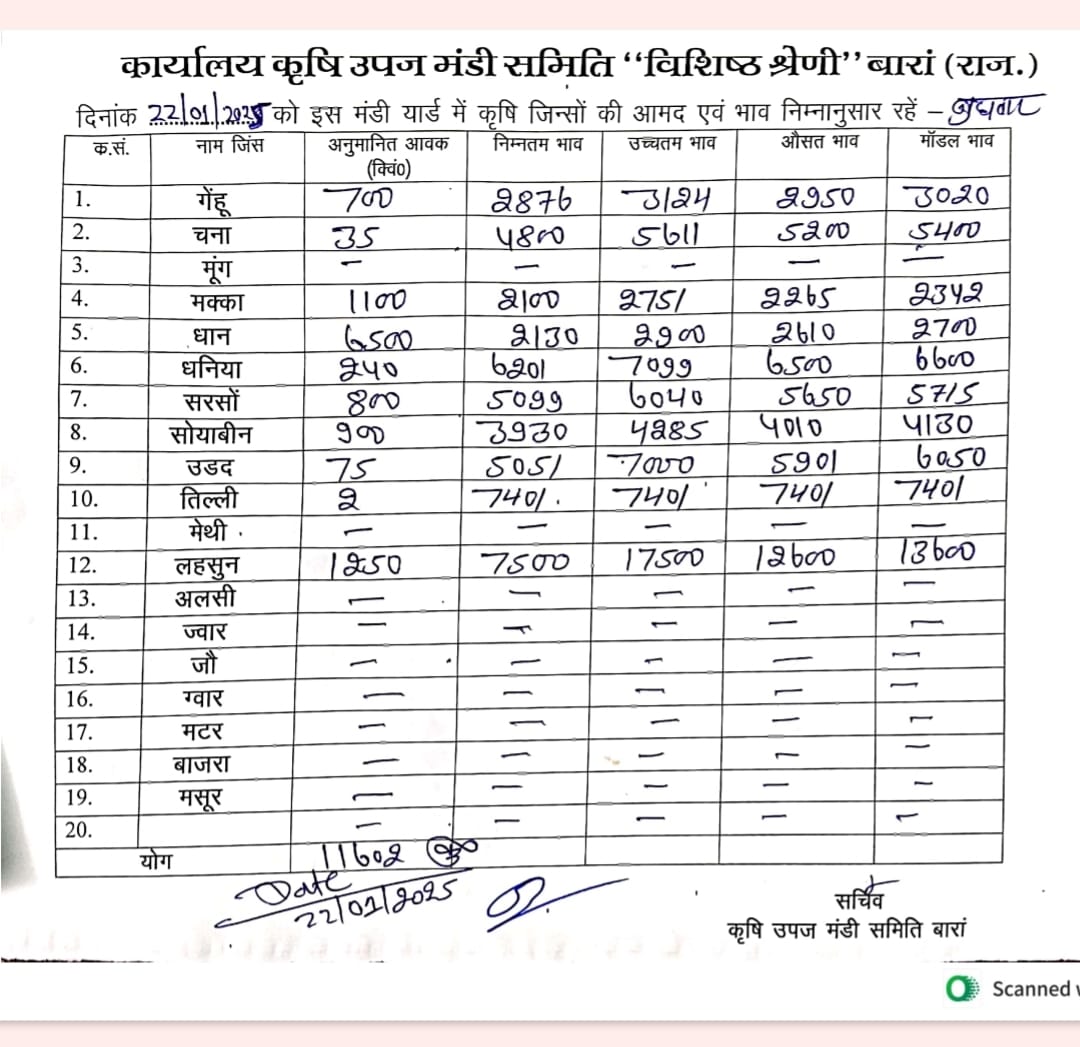 कार्यालय कृषि उपज मंडी समिति “विशिष्ठ श्रेणी” बारां (राज.)
दिनांक 22/01/2025 को इस मंडी यार्ड में कृषि जिन्सों की आमद एवं भाव निम्नानुसार रहें – बुधवार
क.सं. नाम जिंस अनुमानित आवक (क्विं0) निम्नतम भाव उच्चतम भाव औसत भाव मॉडल भाव
1. गेंहू 700 2876 3124 2950 3020
2. चना 35 4800 5611 5200 5400
3. मूंग – – – – –
4. मक्का 1100 2100 2751 2265 2342
5. धान 6500 2130 2900 2610 2700
6. धनिया 240 6201 7099 6500 6600
7. सरसों 800 5099 6040 5650 5715
8. सोयाबीन 900 3930 4285 4010 4130
9. उडद 75 5051 7000 5901 6050
10. तिल्ली 2 7401 7401 7401 7401
11. मेथी – – – – –
12. लहसुन 1250 7500 17500 12600 13600
13. अलसी – – – – –
14. ज्वार – – – – –
15. जौ – – – – –
16. ग्वार – – – – –
17. मटर – – – – –
18. बाजरा – – – – –
19. मसूर – – – – –
20. – – – – –
योग 11602
Date
22/01/2025
सचिव
कृषि उपज मंडी समिति बारां
Scanned